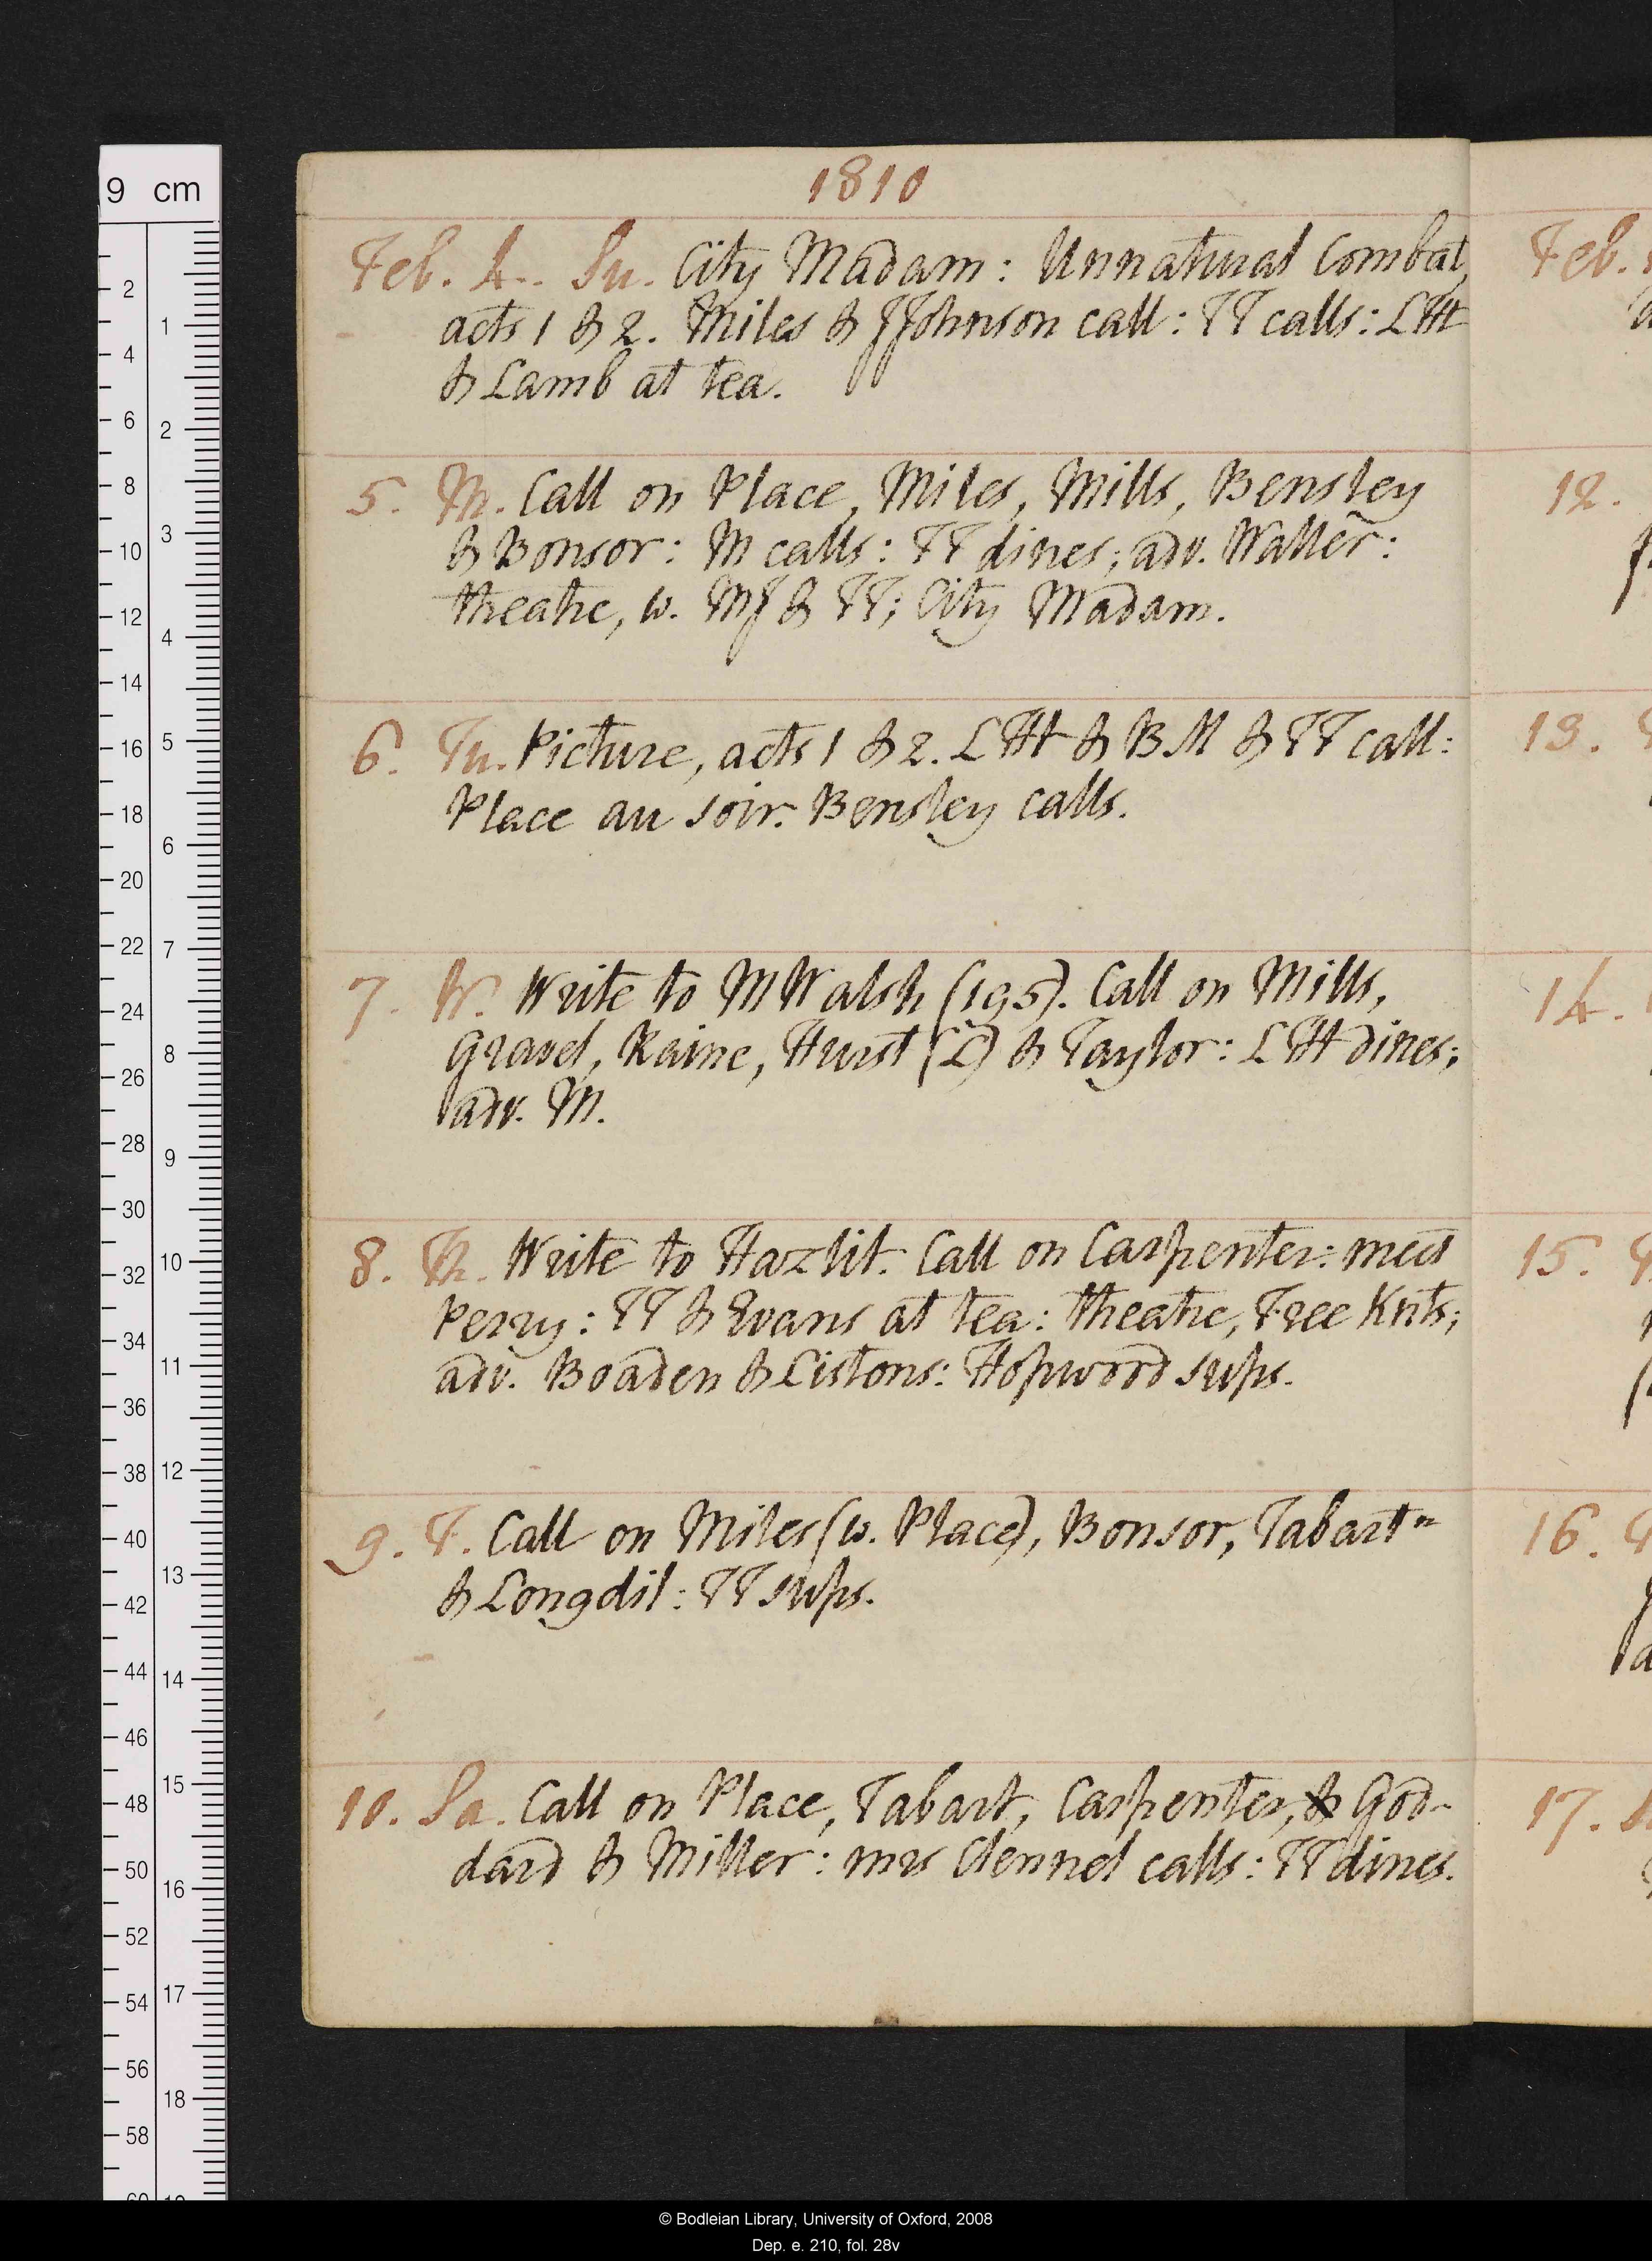 1810
Feb. 4. Su. City Madam: Unnatural Combat,
acts 1 & 2. Miles & JJohnson call: TT calls: LHt
& Lamb at tea.
5. M. Call on Place, Miles, Mills, Bensley
& Bonsor: M calls: TT dines; adv. Walter:
theatre, w. MJ & TT; City Madam.
6. Tu. Picture, acts 1 & 2. LHt & BM & TT call:
Place au soir. Bensley calls.
7. W. Write to MWalsh (195). Call on Mills,
Gravel, Raine, Hurst (L) & Taylor: LHt dines;
adv. M.
8. Th. Write to Hazlit. Call on Carpenter: meet
Perry: TT & Evans at tea: theatre, Free Knts;
adv. Boaden & Listons: Hopwood sups.
9. F. Call on Miles (w. Place), Bonsor, Tabart n
& Longdil: TT sups.
10. Sa. Call on Place, Tabart, Carpenter, & God-
dard & Miller: mrs Clennel calls: TT dines.
Feb.
12.
13.
14.
15.
16.
17.
9 cm
2 4 6 8 10 12 14 16 18 20 22 24 26 28 30 32 34 36 38 40 42 44 46 48 50 52 54 56 58 60
1 2 3 4 5 6 7 8 9 10 11 12 13 14 15 16 17 18
© Bodleian Library, University of Oxford, 2008
Dep. e. 210, fol. 28v